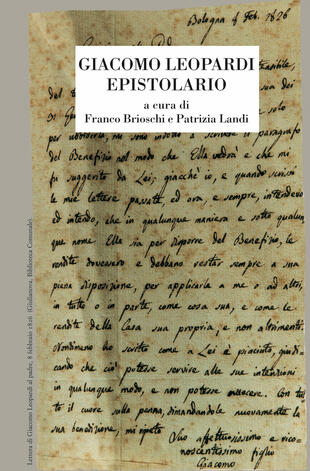 Bologna 8 Feb. 1826
GIACOMO LEOPARDI
EPISTOLARIO
a cura di
Franco Brioschi e Patrizia Landi
tensibile,
del
sua dei
solo
per ubbidirla, mi sono indotto a scrivere il paragrafo
del Benefizio nel modo che Ella vedrà e che mi
fu suggerito da Lei; giacchè io, e quando scrissi
le mie lettere passate, ed ora, e sempre, intendeva
ed intendo, che in qualunque maniera e sotto qualun
que nome Ella sia per disporre del Benefizio, le
rendite dovessero e debbano restar sempre a sua
piena disposizione, per applicarle a me o ad altri,
in tutto o in parte, come cosa sua, e come le
rendite della Casa sua propria, e non altrimenti.
Nondimeno ho scritto come a Lei è piaciuto, giudi-
cando che ciò potesse servire alle sue intenzioni
in qualunque modo, e non potesse nuocere. Con tut
to il cuore sulla penna, dimandandole nuovamente la
sua benedizione, mi ripeto
Suo affettuosissimo e rico-
noscentissimo figlio
Giacomo
Lettera di Giacomo Leopardi al padre, 8 febbraio 1826 (Giulianova, Biblioteca Comunale).